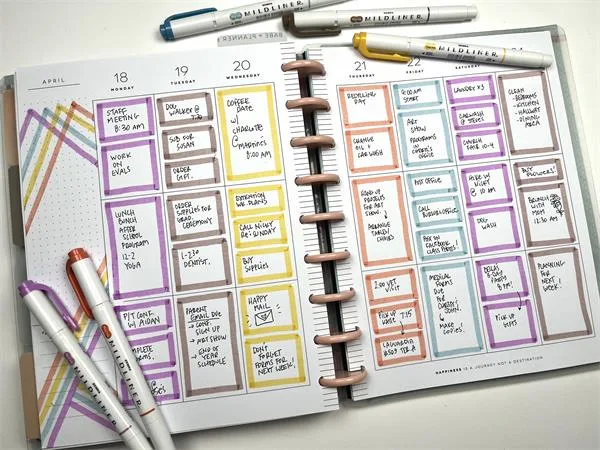 MILDLINER
MILDLINER
MILDLINER
BABE + PLANNER
APRIL
18
MONDAY
STAFF
MEETING
8:30 AM
WORK
ON
EVALS
LUNCH
BUNCH
AFTER
SCHOOL
PROGRAM
12-2
YOGA
P/T CONF.
W/ AIDAN
FORMS
19
TUESDAY
DOG
WALKER @
SUB FOR
SUSAN
ORDER
GIFT.
ORDER
SUPPLIES FOR
GRAD.
CEREMONY
1-2:30
DENTIST.
PARENT
EMAIL DUE
→ CONF.
SIGN UP
→ ART SHOW
→ END OF
YEAR
SCHEDULE
20
WEDNESDAY
COFFEE
DATE
W/
CHARLOTTE
@
MARTINO'S
8:00 AM
EXTENTION
CALL NICKY
RE: SUNDAY
BUY
SUPPLIES
HAPPY
MAIL
DON'T
FORGET
FORMS FOR
NEXT WEEK!
21
THURSDAY
RECYCLING
DAY
CHANGE
OIL +
CAR WASH
ROUND UP
FOR ART
SHOW.
ARRANGE
TABLES/
CHAIRS
2:00 VET
VISIT
PICK UP
7:15
LAGUARDIA
22
FRIDAY
START
ART
SHOW
PROGRAMS
IN
OFFICE
POST OFFICE
CALL
PAY ON
FACEBOOK
CLASS PARTY!
MEDICAL
FORMS
DUE
FOR
JOHN.
MAKE
COPIES!
SATURDAY
LAUNDRY X3
CARWASH
LUNCH
FAIR 10-4
HIKE W/
NICKY
@ 10 AM
DOG
WASH
BDAY
PARTY
PICK UP
GIFTS
CLEAN
- BEDROOMS
- KITCHEN
- HALLWAY
- DINING
AREA
BUY
FLOWERS!
BRUNCH
WITH
MOM
11:30 AM
PLANNING
FOR
NEXT
WEEK!
HAPPINESS IS A JOURNEY NOT A DESTINATION
MILDLINER
MILDLINER